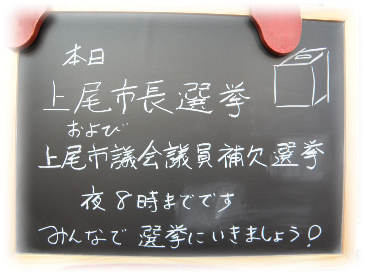 本日
上尾市長選挙
および
上尾市議会議員補欠選挙
夜8時までです
みんなで選挙にいきましょう!